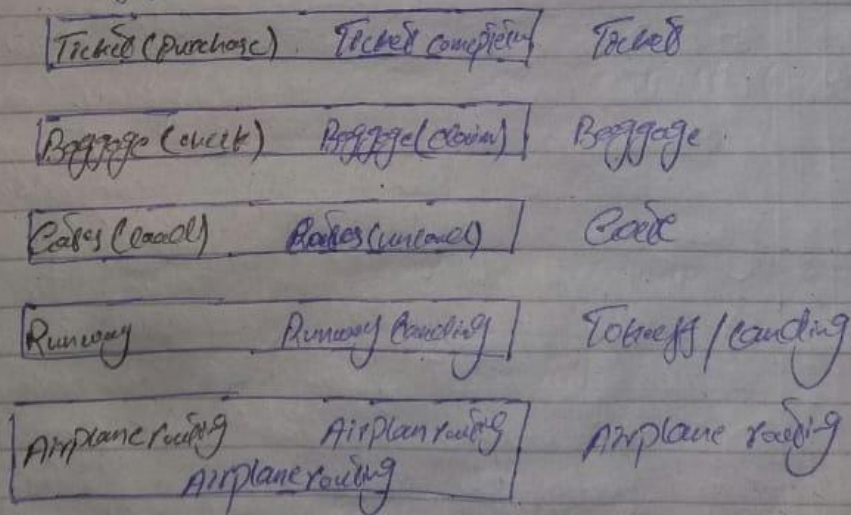 Ticket (purchase) Ticket complain Ticket
Baggage (check) Baggage (claim) Baggage
Gates (load) Gates (unload) Gate
Runway Runway Landing Takeoff / landing
Airplane routing Airplan routing Airplane routing
Airplane routing